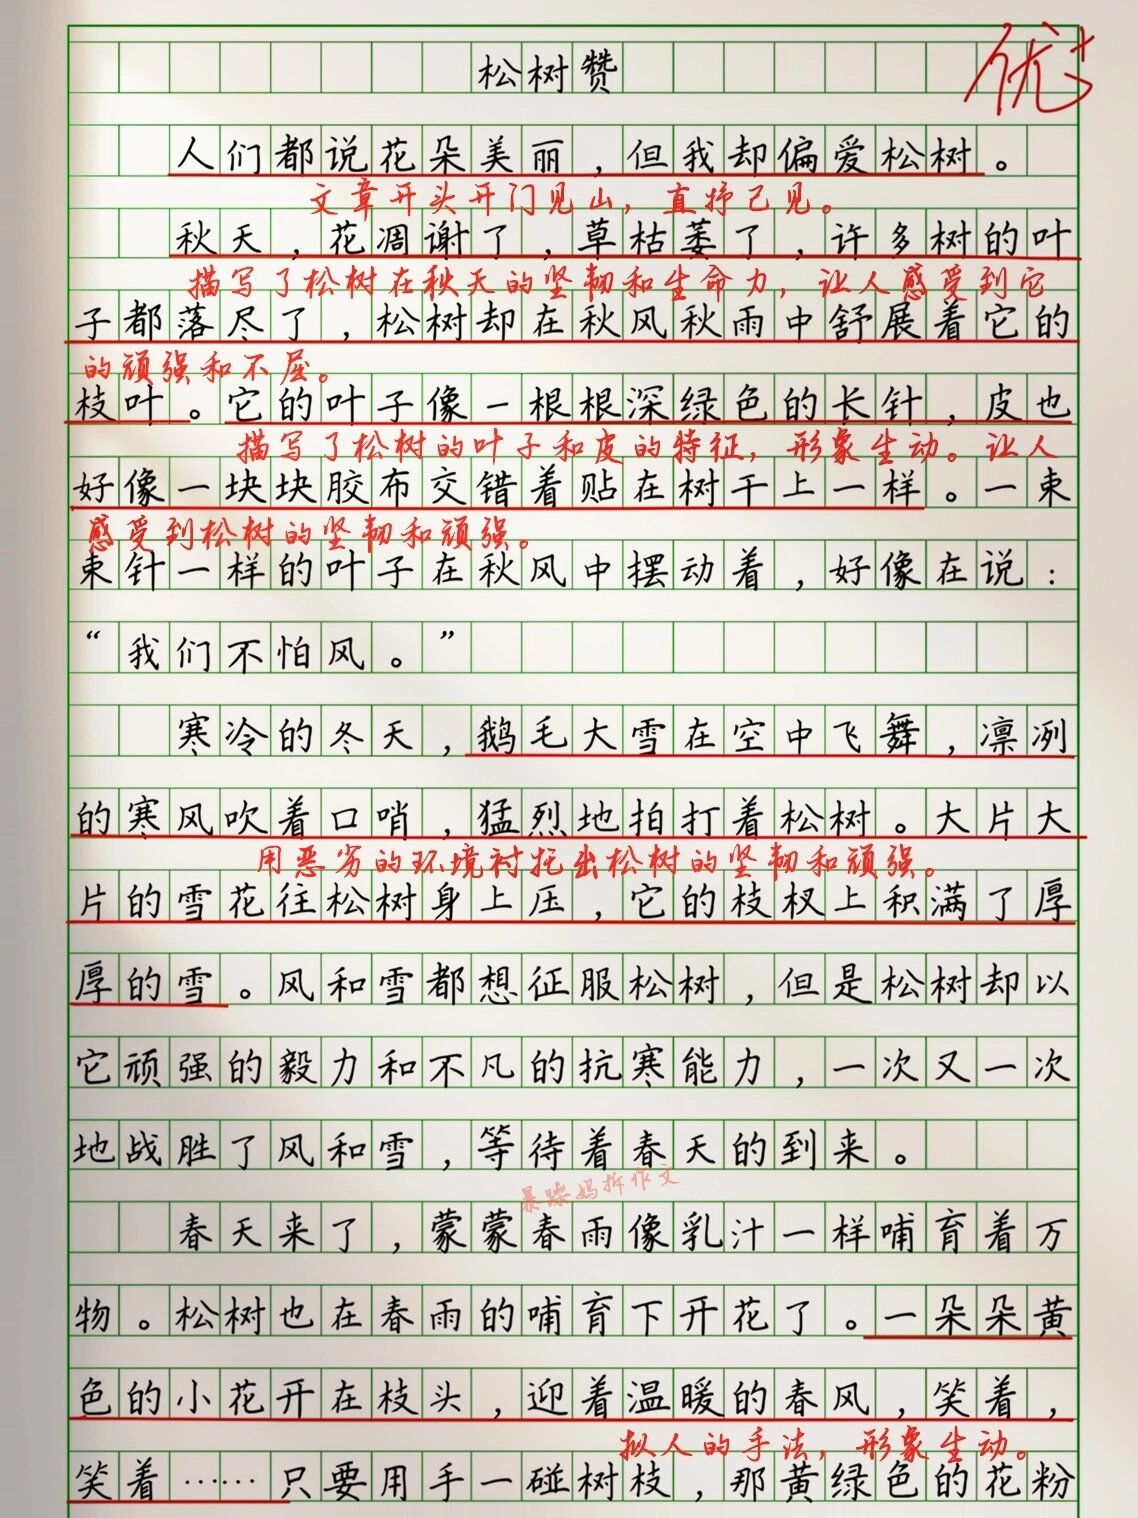 松树赞
优+
人们都说花朵美丽，但我却偏爱松树。
文章开头开门见山，直抒己见。
秋天，花凋谢了，草枯萎了，许多树的叶
描写了松树在秋天的坚韧和生命力，让人感受到它
子都落尽了，松树却在秋风秋雨中舒展着它的
的顽强和不屈。
枝叶。它的叶子像一根根深绿色的长针，皮也
描写了松树的叶子和皮的特征，形象生动。让人
好像一块块胶布交错着贴在树干上一样。一束
感受到松树的坚韧和顽强。
束针一样的叶子在秋风中摆动着，好像在说：
“我们不怕风。”
寒冷的冬天，鹅毛大雪在空中飞舞，凛冽
的寒风吹着口哨，猛烈地拍打着松树。大片大
用恶劣的环境衬托出松树的坚韧和顽强。
片的雪花往松树身上压，它的枝杈上积满了厚
厚的雪。风和雪都想征服松树，但是松树却以
它顽强的毅力和不凡的抗寒能力，一次又一次
地战胜了风和雪，等待着春天的到来。
暴躁妈拆作文
春天来了，蒙蒙春雨像乳汁一样哺育着万
物。松树也在春雨的哺育下开花了。一朵朵黄
色的小花开在枝头，迎着温暖的春风，笑着，
拟人的手法，形象生动。
笑着……只要用手一碰树枝，那黄绿色的花粉